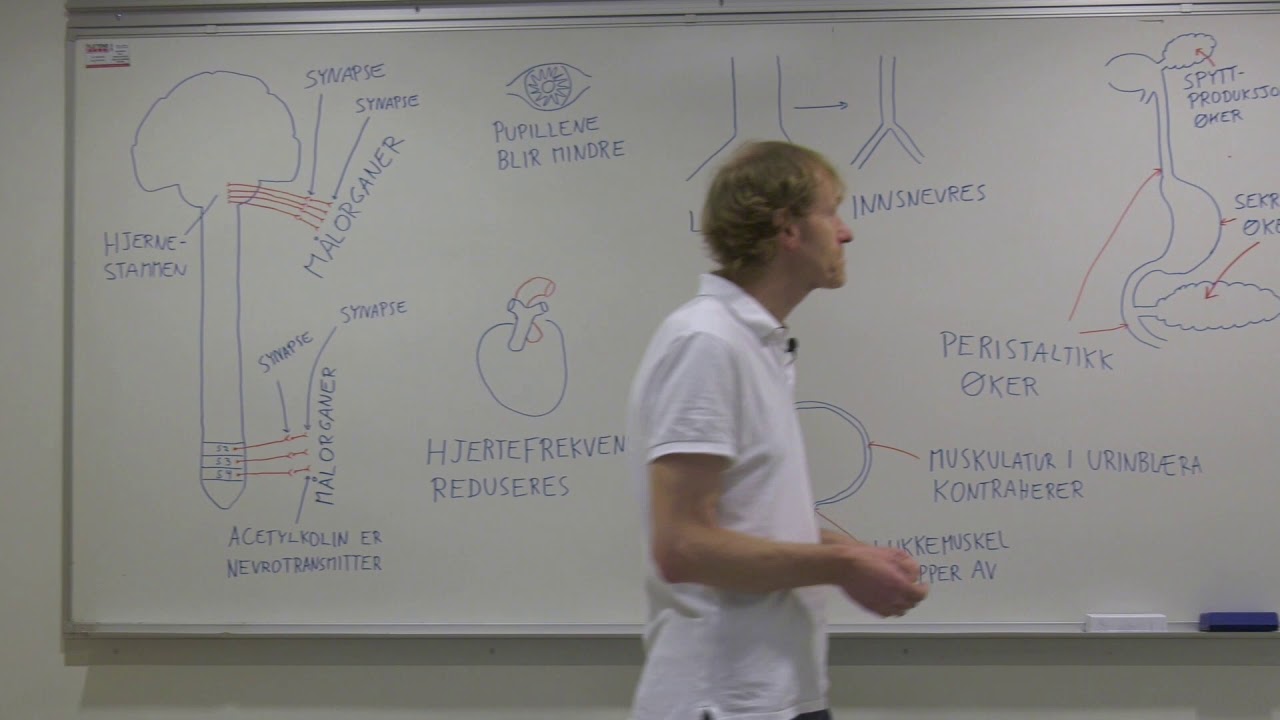 SYNAPSE
SYNAPSE
MÅLORGANER
HJERNE-
STAMMEN
SYNAPSE
SYNAPSE
MÅLORGANER
S2
S3
S4
ACETYLKOLIN ER
NEVROTRANSMITTER
PUPILLENE
BLIR MINDRE
HJERTEFREKVEN
REDUSERES
L
INNSNEVRES
SPYTT-
PRODUKSJO
ØKER
SEKR
ØKE
PERISTALTIKK
ØKER
MUSKULATUR I URINBLÆRA
KONTRAHERER
UKKEMUSKEL
PPER AV